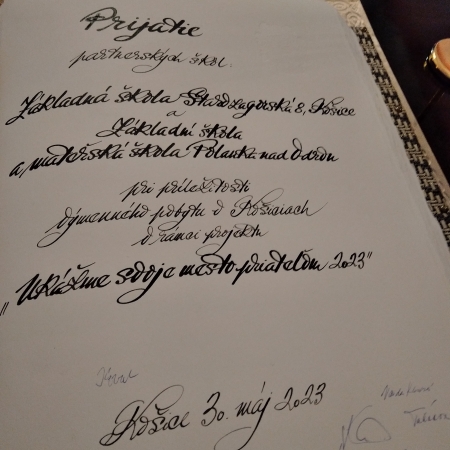 Prijatie
partnerských škôl.
Základná škola Starozagorská 8, Košice
a
Základní škola
a mateřská škola Polanka nad Odrou
pri príležitosti
výmenného pobytu v Košiciach
v rámci projektu
„Ukážme svoje mesto priateľom 2023"
Košice 30. máj 2023